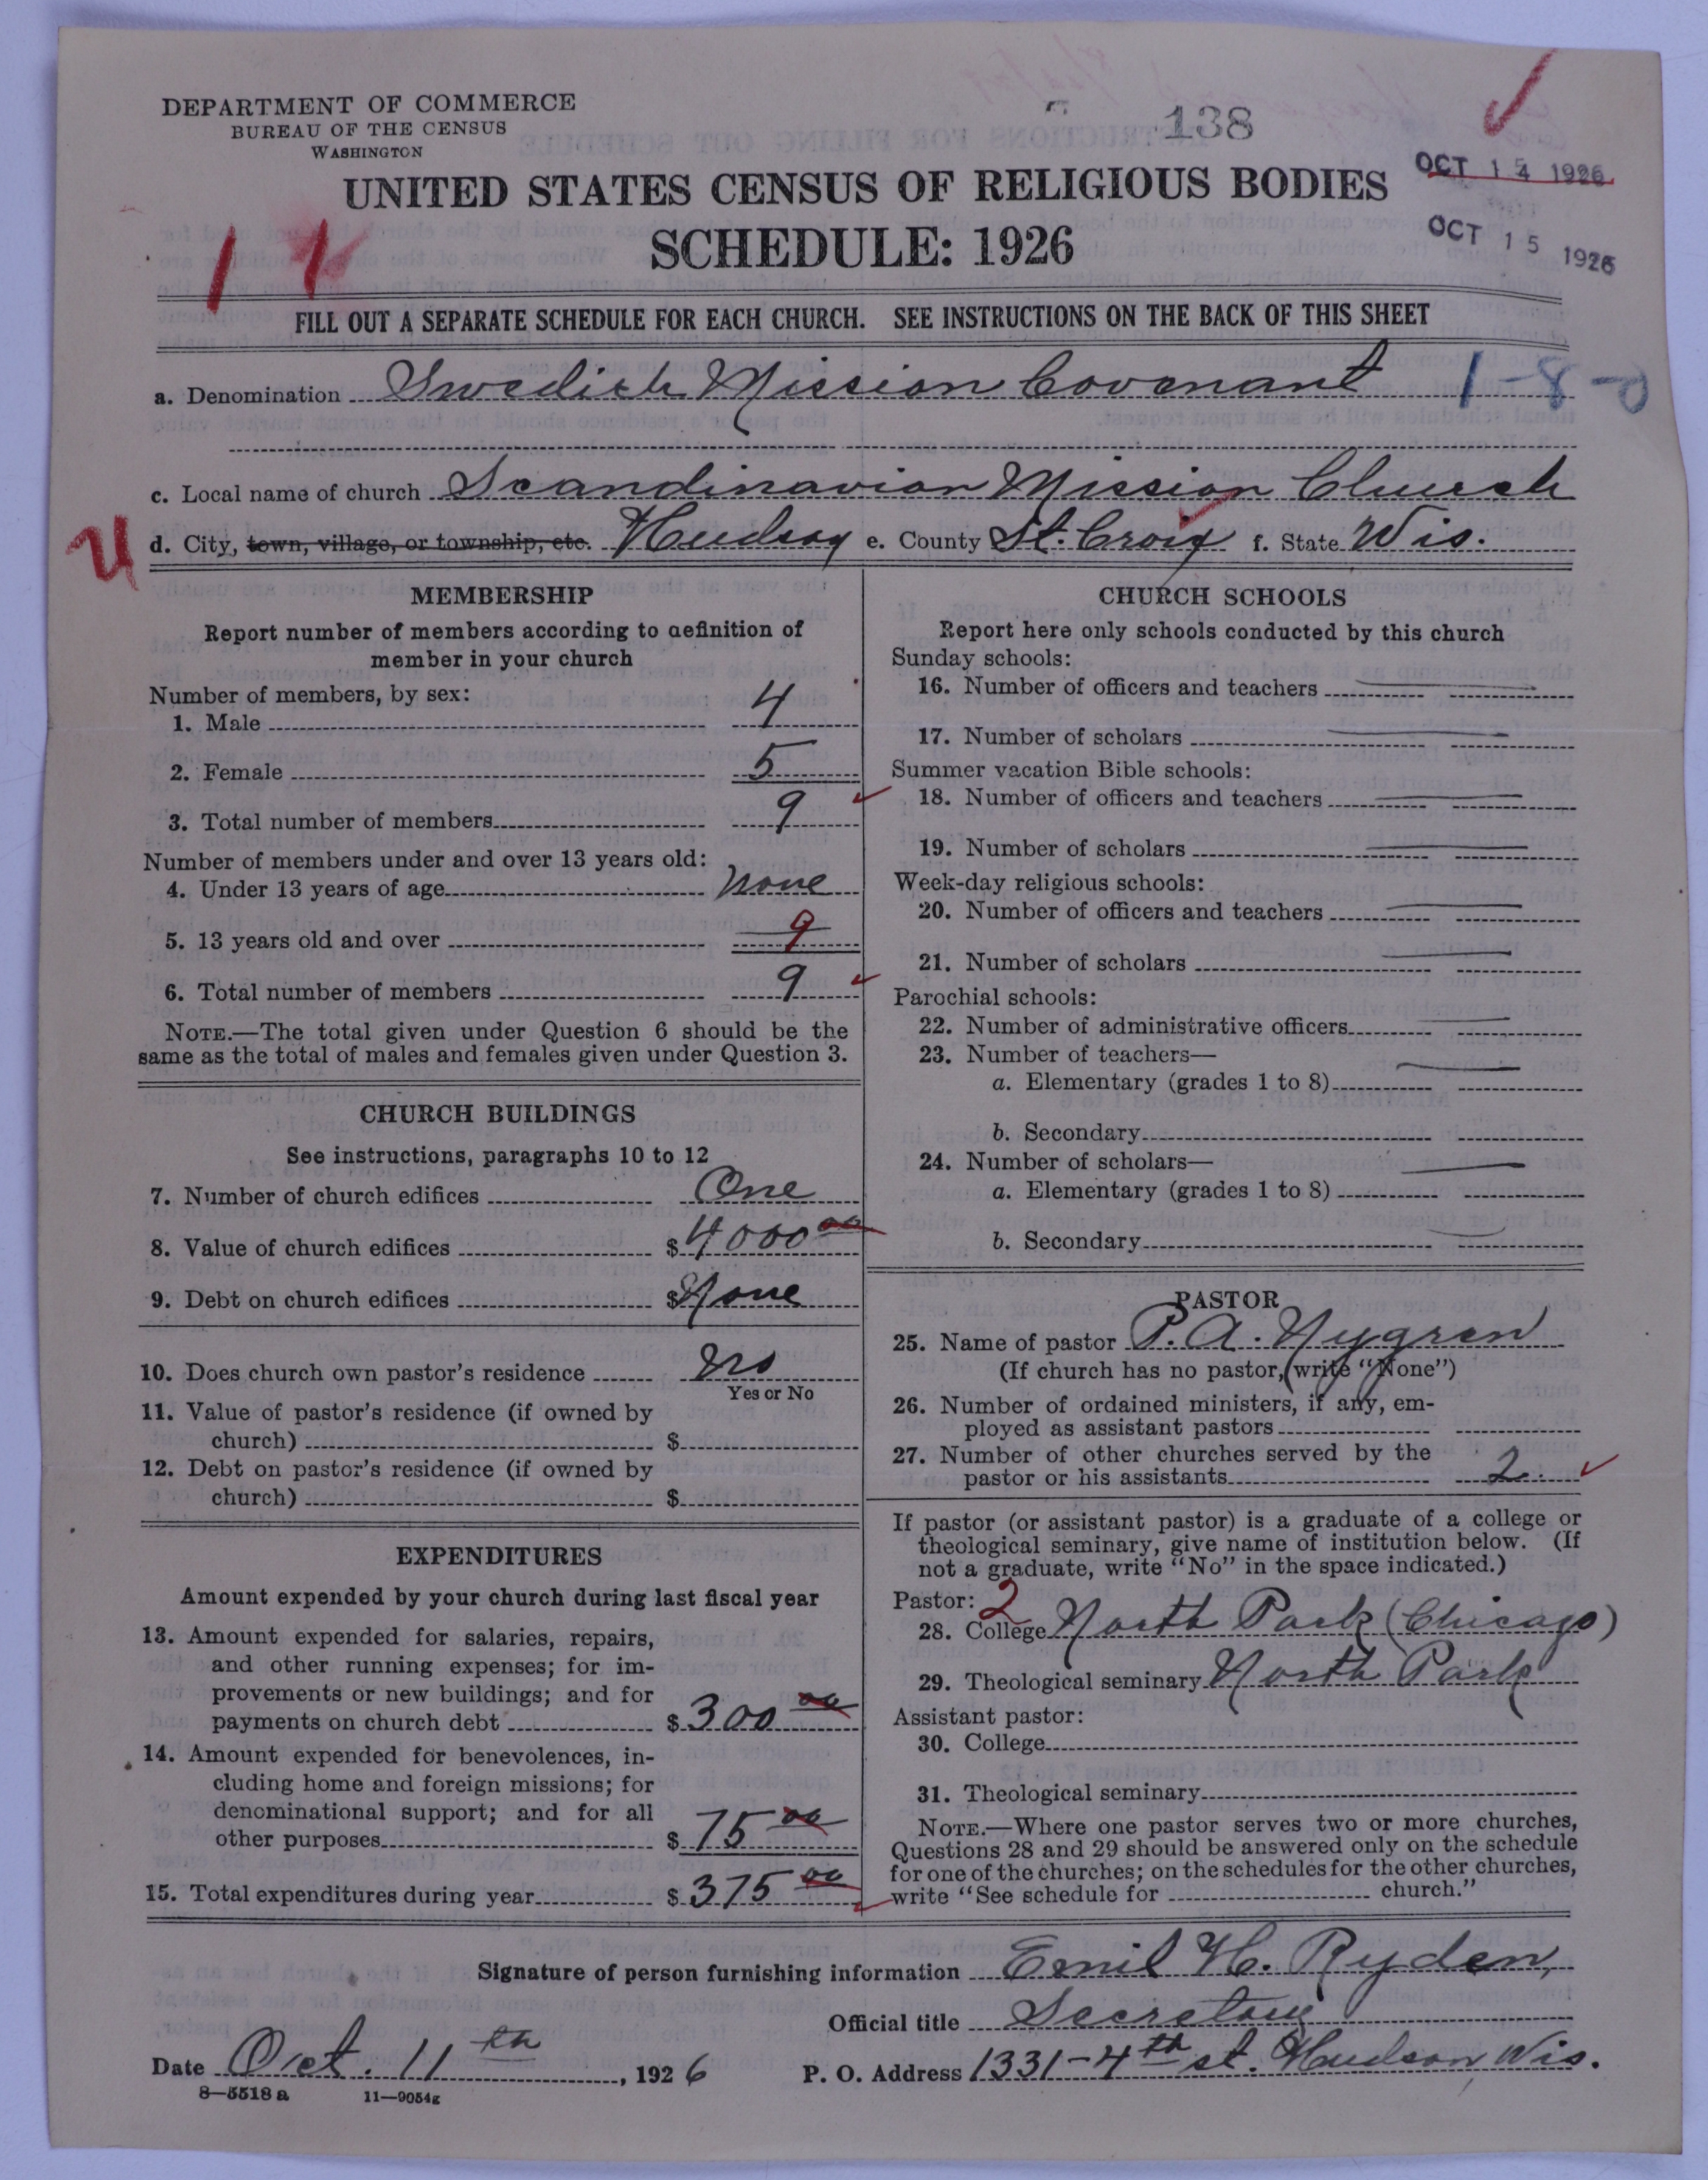 DEPARTMENT OF COMMERCE
BUREAU OF THE CENSUS
WASHINGTON
138
OCT 14 1926
OCT 15 1926
UNITED STATES CENSUS OF RELIGIOUS BODIES
SCHEDULE: 1926
FILL OUT A SEPARATE SCHEDULE FOR EACH CHURCH. SEE INSTRUCTIONS ON THE BACK OF THIS SHEET
a. Denomination Swedish Mission Covenant 1-8-
c. Local name of church Scandinavian Mission Church
d. City, town, village, or township, etc. Hudson e. County St. Croix f. State Wis.
MEMBERSHIP
Report number of members according to definition of
member in your church
Number of members, by sex:
1. Male 4
2. Female 5
3. Total number of members 9
Number of members under and over 13 years old:
4. Under 13 years of age none
5. 13 years old and over 9
6. Total number of members 9
NOTE.—The total given under Question 6 should be the
same as the total of males and females given under Question 3.
CHURCH BUILDINGS
See instructions, paragraphs 10 to 12
7. Number of church edifices One
8. Value of church edifices $4000 00
9. Debt on church edifices $None
10. Does church own pastor's residence no
Yes or No
11. Value of pastor's residence (if owned by
church) $
12. Debt on pastor's residence (if owned by
church) $
EXPENDITURES
Amount expended by your church during last fiscal year
13. Amount expended for salaries, repairs,
and other running expenses; for im-
provements or new buildings; and for
payments on church debt $300 00
14. Amount expended for benevolences, in-
cluding home and foreign missions; for
denominational support; and for all
other purposes $75 00
15. Total expenditures during year $375 00
CHURCH SCHOOLS
Report here only schools conducted by this church
Sunday schools:
16. Number of officers and teachers
17. Number of scholars
Summer vacation Bible schools:
18. Number of officers and teachers
19. Number of scholars
Week-day religious schools:
20. Number of officers and teachers
21. Number of scholars
Parochial schools:
22. Number of administrative officers
23. Number of teachers—
a. Elementary (grades 1 to 8)
b. Secondary
24. Number of scholars—
a. Elementary (grades 1 to 8)
b. Secondary
PASTOR
25. Name of pastor P. A. Nygren
(If church has no pastor, write "None")
26. Number of ordained ministers, if any, em-
ployed as assistant pastors
27. Number of other churches served by the
pastor or his assistants 2
If pastor (or assistant pastor) is a graduate of a college or
theological seminary, give name of institution below. (If
not a graduate, write "No" in the space indicated.)
Pastor: 2
28. College North Park (Chicago)
29. Theological seminary North Park
Assistant pastor:
30. College
31. Theological seminary
NOTE.—Where one pastor serves two or more churches,
Questions 28 and 29 should be answered only on the schedule
for one of the churches; on the schedules for the other churches,
write "See schedule for church."
Signature of person furnishing information Emil H. Ryden,
Official title Secretary
Date Oct. 11th, 1926 P. O. Address 1331-4th st. Hudson, Wis.
8-5518 a 11-9054g